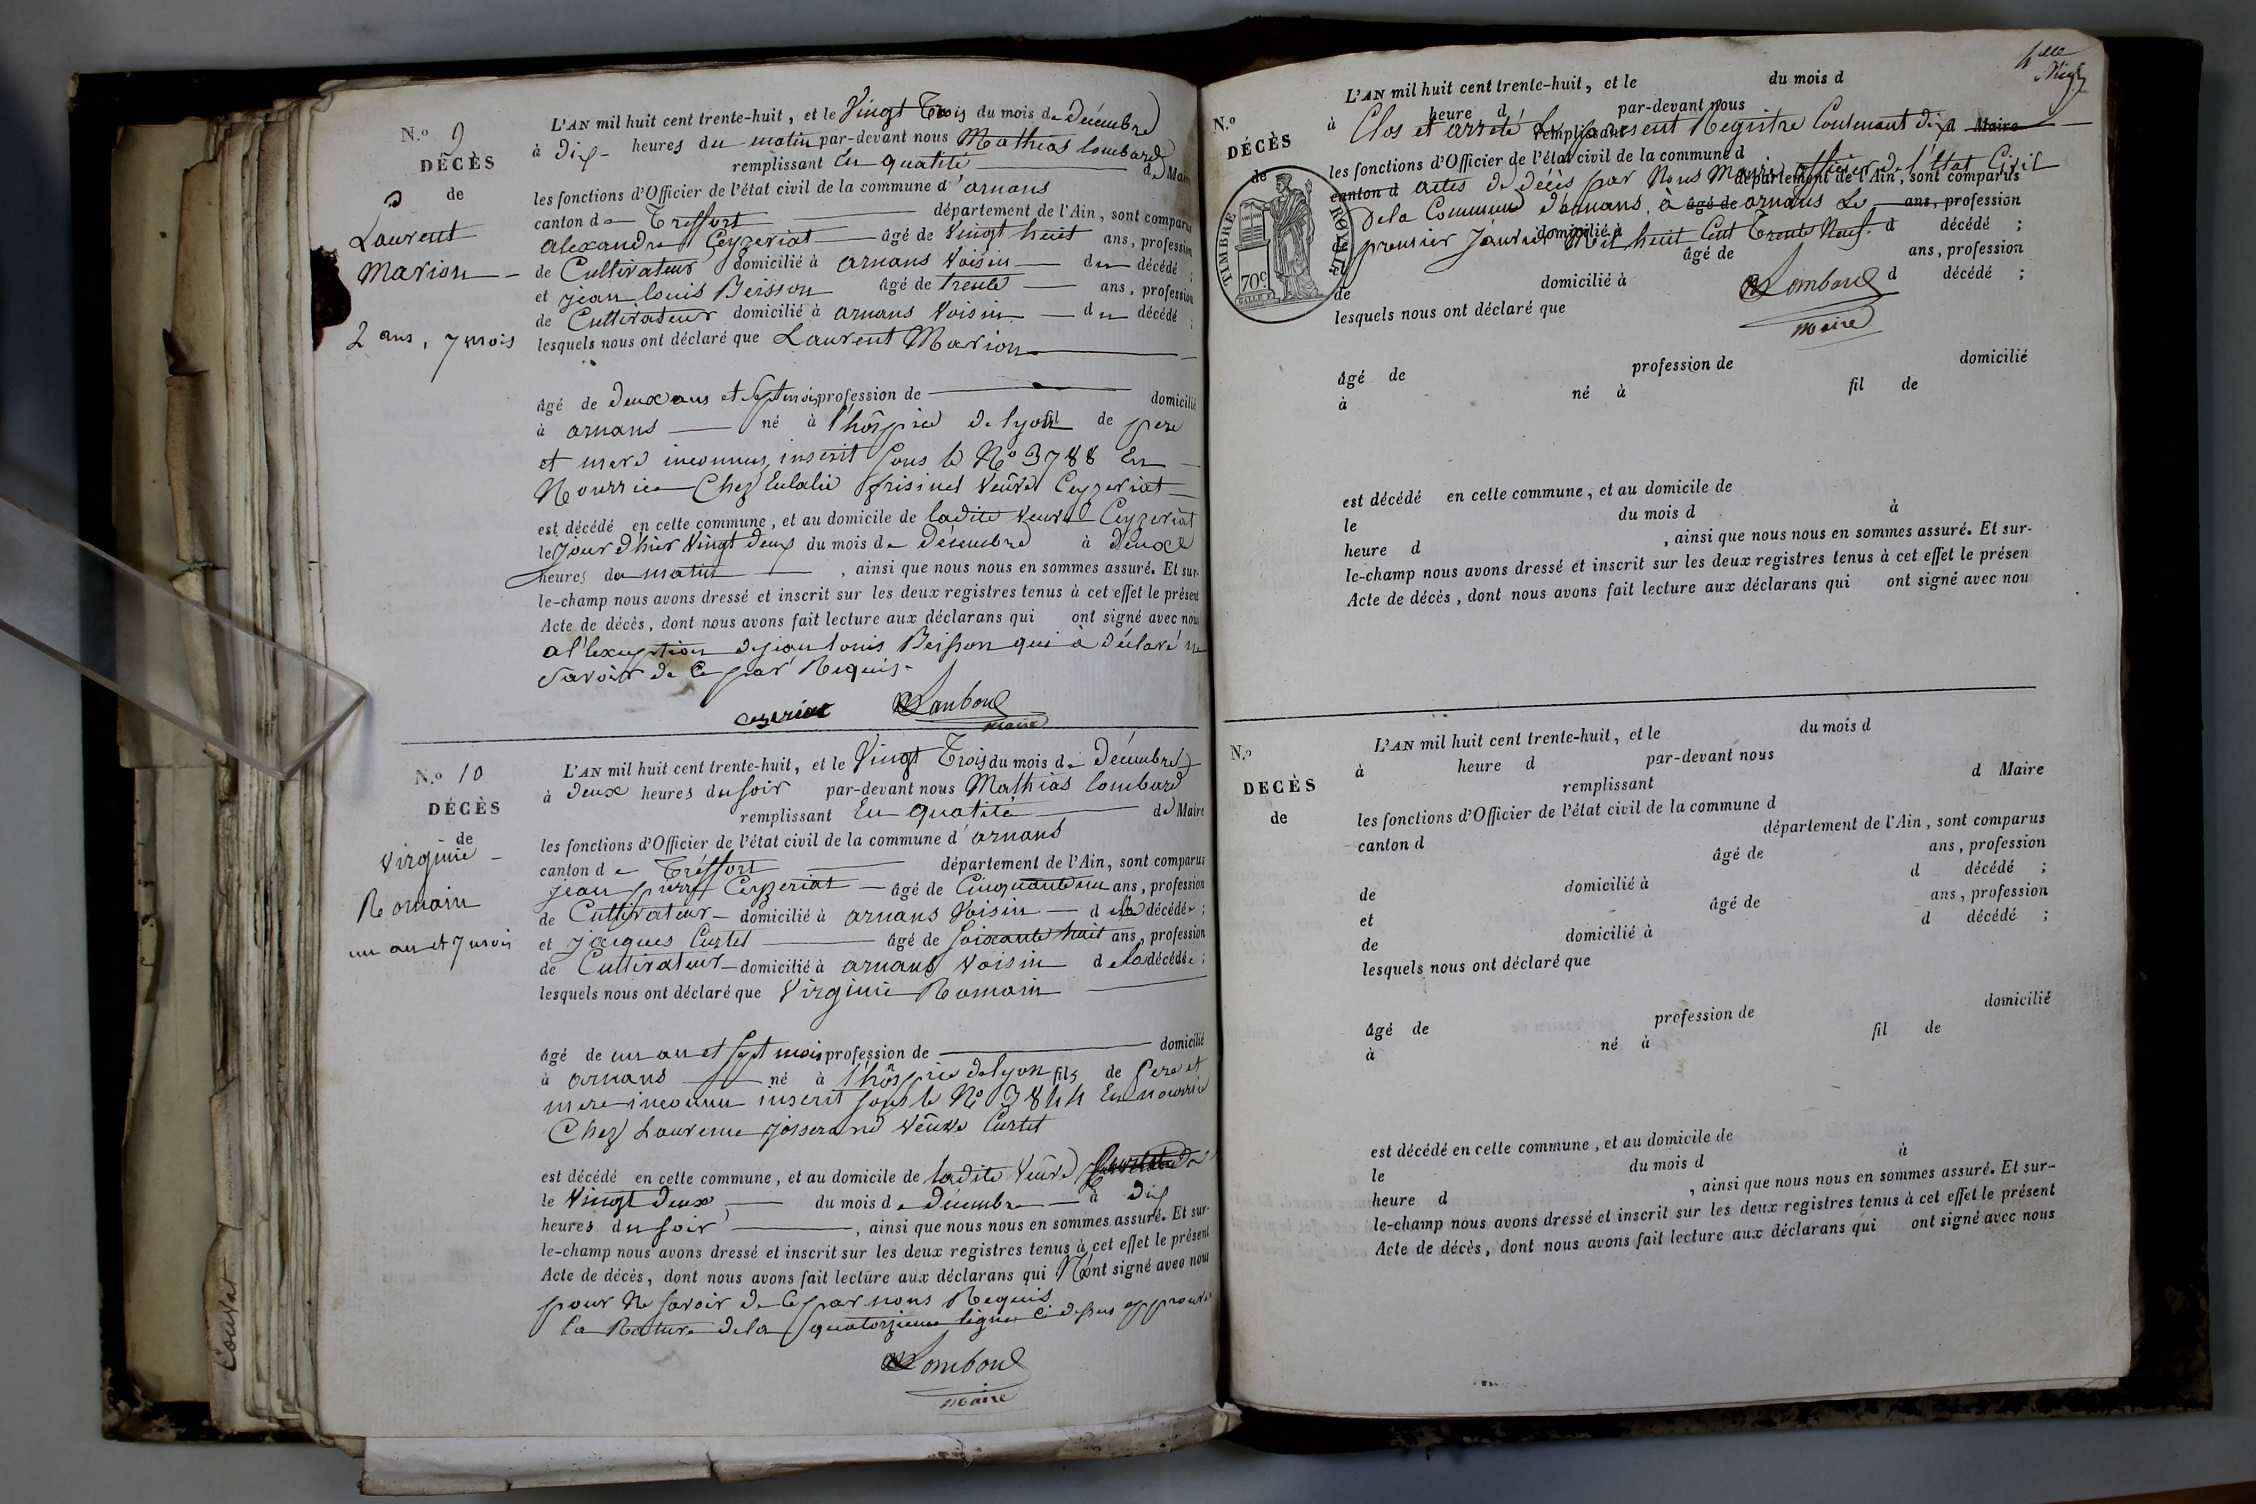 N.º 9
DÉCÈS
de
Laurent
Marion
2 ans, 7 mois
L'AN mil huit cent trente-huit, et le Vingt Trois du mois de Décembre
à dix heures du matin par-devant nous Mathias Lombard
remplissant En qualité d Maire
les fonctions d'Officier de l'état civil de la commune d'arnans
canton de Treffort département de l'Ain, sont comparus
alexandre Ceyzeriat âgé de Vingt huit ans, profession
de Cultivateur domicilié à arnans Voisin du décédé ;
et jean louis Beisson âgé de trente ans, profession
de Cultivateur domicilié à arnans Voisin du décédé ;
lesquels nous ont déclaré que Laurent Marion
âgé de deux ans et Sept mois profession de domicilié
à arnans né à l'hôspice de lyon fil de pere
et mere inconnus, inscrit sous le Nº 3788 En
Nourrice Chez Eulalie veûve Ceyzeriat
est décédé en cette commune, et au domicile de ladite veuve Ceyzeriat
le jour d'hier Vingt deux du mois de décembre à deux
heures du matin, ainsi que nous nous en sommes assuré. Et sur-
le-champ nous avons dressé et inscrit sur les deux registres tenus à cet effet le présent
Acte de décès, dont nous avons fait lecture aux déclarans qui ont signé avec nous
a l'exception de jean louis Beisson qui à déclaré ne
Savoir de Ce par Requis
Ceyzeriat Lombard
maire
N.º 10
DÉCÈS
de
Virginie
Romain
un an et 7 mois
L'AN mil huit cent trente-huit, et le Vingt Trois du mois de Décembre
à deux heures du soir par-devant nous Mathias Lombard
remplissant En qualité de Maire
les fonctions d'Officier de l'état civil de la commune d'arnans
canton de Tréffort département de l'Ain, sont comparus
jean pierre Ceyzeriat âgé de Cinquante un ans, profession
de Cultivateur domicilié à arnans Voisin de la décédée ;
et jacques Curtet âgé de Soixante huit ans, profession
de Cultivateur domicilié à arnans Voisin de la décédée ;
lesquels nous ont déclaré que Virginie Romain
âgé de un an et sept mois profession de domicilié
à arnans né à l'hôspice de lyon fils de Pere et
mere inconnu inscrit sous le Nº 3844 En nourrice
Chez Laurence josserand Veûve Curtet
est décédé en cette commune, et au domicile de ladite Veûve
le Vingt deux du mois de décembre à dix
heures du soir, ainsi que nous nous en sommes assuré. Et sur-
le-champ nous avons dressé et inscrit sur les deux registres tenus à cet effet le présent
Acte de décès, dont nous avons fait lecture aux déclarans qui N'ont signé avec nous
pour Ne savoir de Ce par nous Requis
la Rature de la quatorzieme ligne Ci dessus approuvée
Lombard
maire
N.º
DÉCÈS
de
TIMBRE ROYAL
70 C.
L'AN mil huit cent trente-huit, et le du mois d
à heure d par-devant nous
Clos et arrêté le present Registre Contenant dix
remplissant d Maire
les fonctions d'Officier de l'état civil de la commune d
actes de décès par Nous Maire officier de l'Etat Civil
canton d département de l'Ain, sont comparus
De la Commune d'arnans, à arnans Le
âgé de ans, profession
premier Janvier Mil huit Cent Trente Neuf.
de domicilié à d décédé ;
et âgé de ans, profession
de domicilié à d décédé ;
Lombard
maire
lesquels nous ont déclaré que
âgé de profession de domicilié
à né à fil de
est décédé en cette commune, et au domicile de
le du mois d à
heure d , ainsi que nous nous en sommes assuré. Et sur-
le-champ nous avons dressé et inscrit sur les deux registres tenus à cet effet le présen
Acte de décès, dont nous avons fait lecture aux déclarans qui ont signé avec nou
N.º
DECÈS
de
L'AN mil huit cent trente-huit, et le du mois d
à heure d par-devant nous
remplissant d Maire
les fonctions d'Officier de l'état civil de la commune d
canton d département de l'Ain, sont comparus
âgé de ans, profession
de domicilié à d décédé ;
et âgé de ans, profession
de domicilié à d décédé ;
lesquels nous ont déclaré que
âgé de profession de domicilié
à né à fil de
est décédé en cette commune, et au domicile de
le du mois d à
heure d , ainsi que nous nous en sommes assuré. Et sur-
le-champ nous avons dressé et inscrit sur les deux registres tenus à cet effet le présent
Acte de décès, dont nous avons fait lecture aux déclarans qui ont signé avec nous